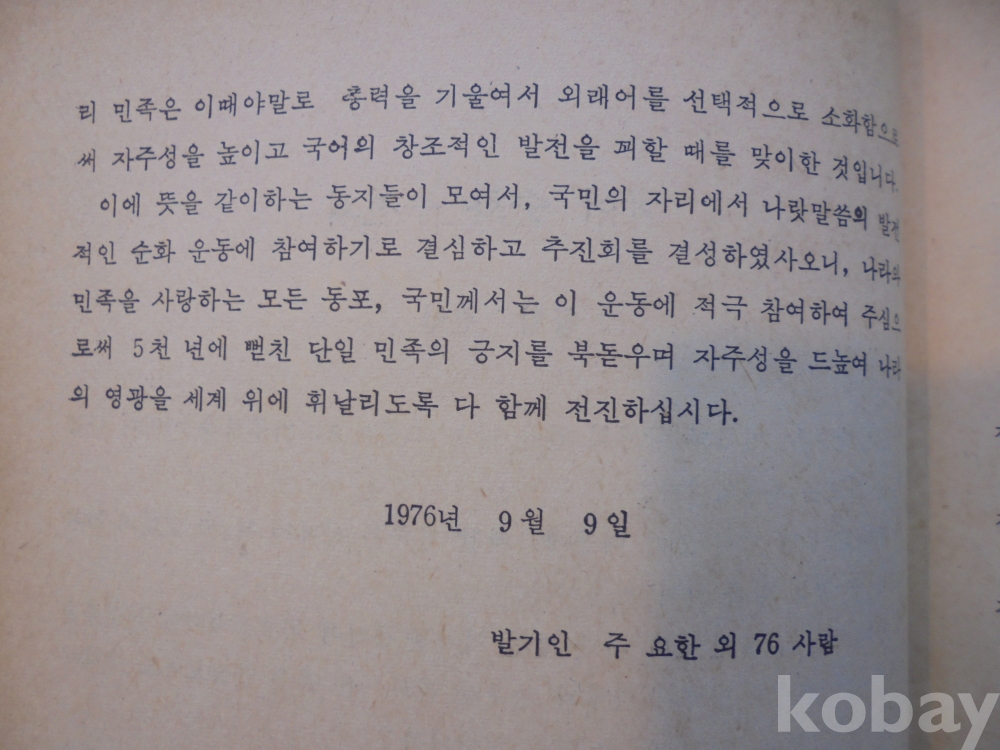 리 민족은 이때야말로 총력을 기울여서 외래어를 선택적으로 소화함으로
써 자주성을 높이고 국어의 창조적인 발전을 꾀할 때를 맞이한 것입니다.
이에 뜻을 같이하는 동지들이 모여서, 국민의 자리에서 나랏말씀의 발전
적인 순화 운동에 참여하기로 결심하고 추진회를 결성하였사오니, 나라와
민족을 사랑하는 모든 동포, 국민께서는 이 운동에 적극 참여하여 주심으
로써 5천 년에 뻗친 단일 민족의 긍지를 북돋우며 자주성을 드높여 나라
의 영광을 세계 위에 휘날리도록 다 함께 전진하십시다.
1976년 9월 9일
발기인 주 요한 외 76 사람
kobay